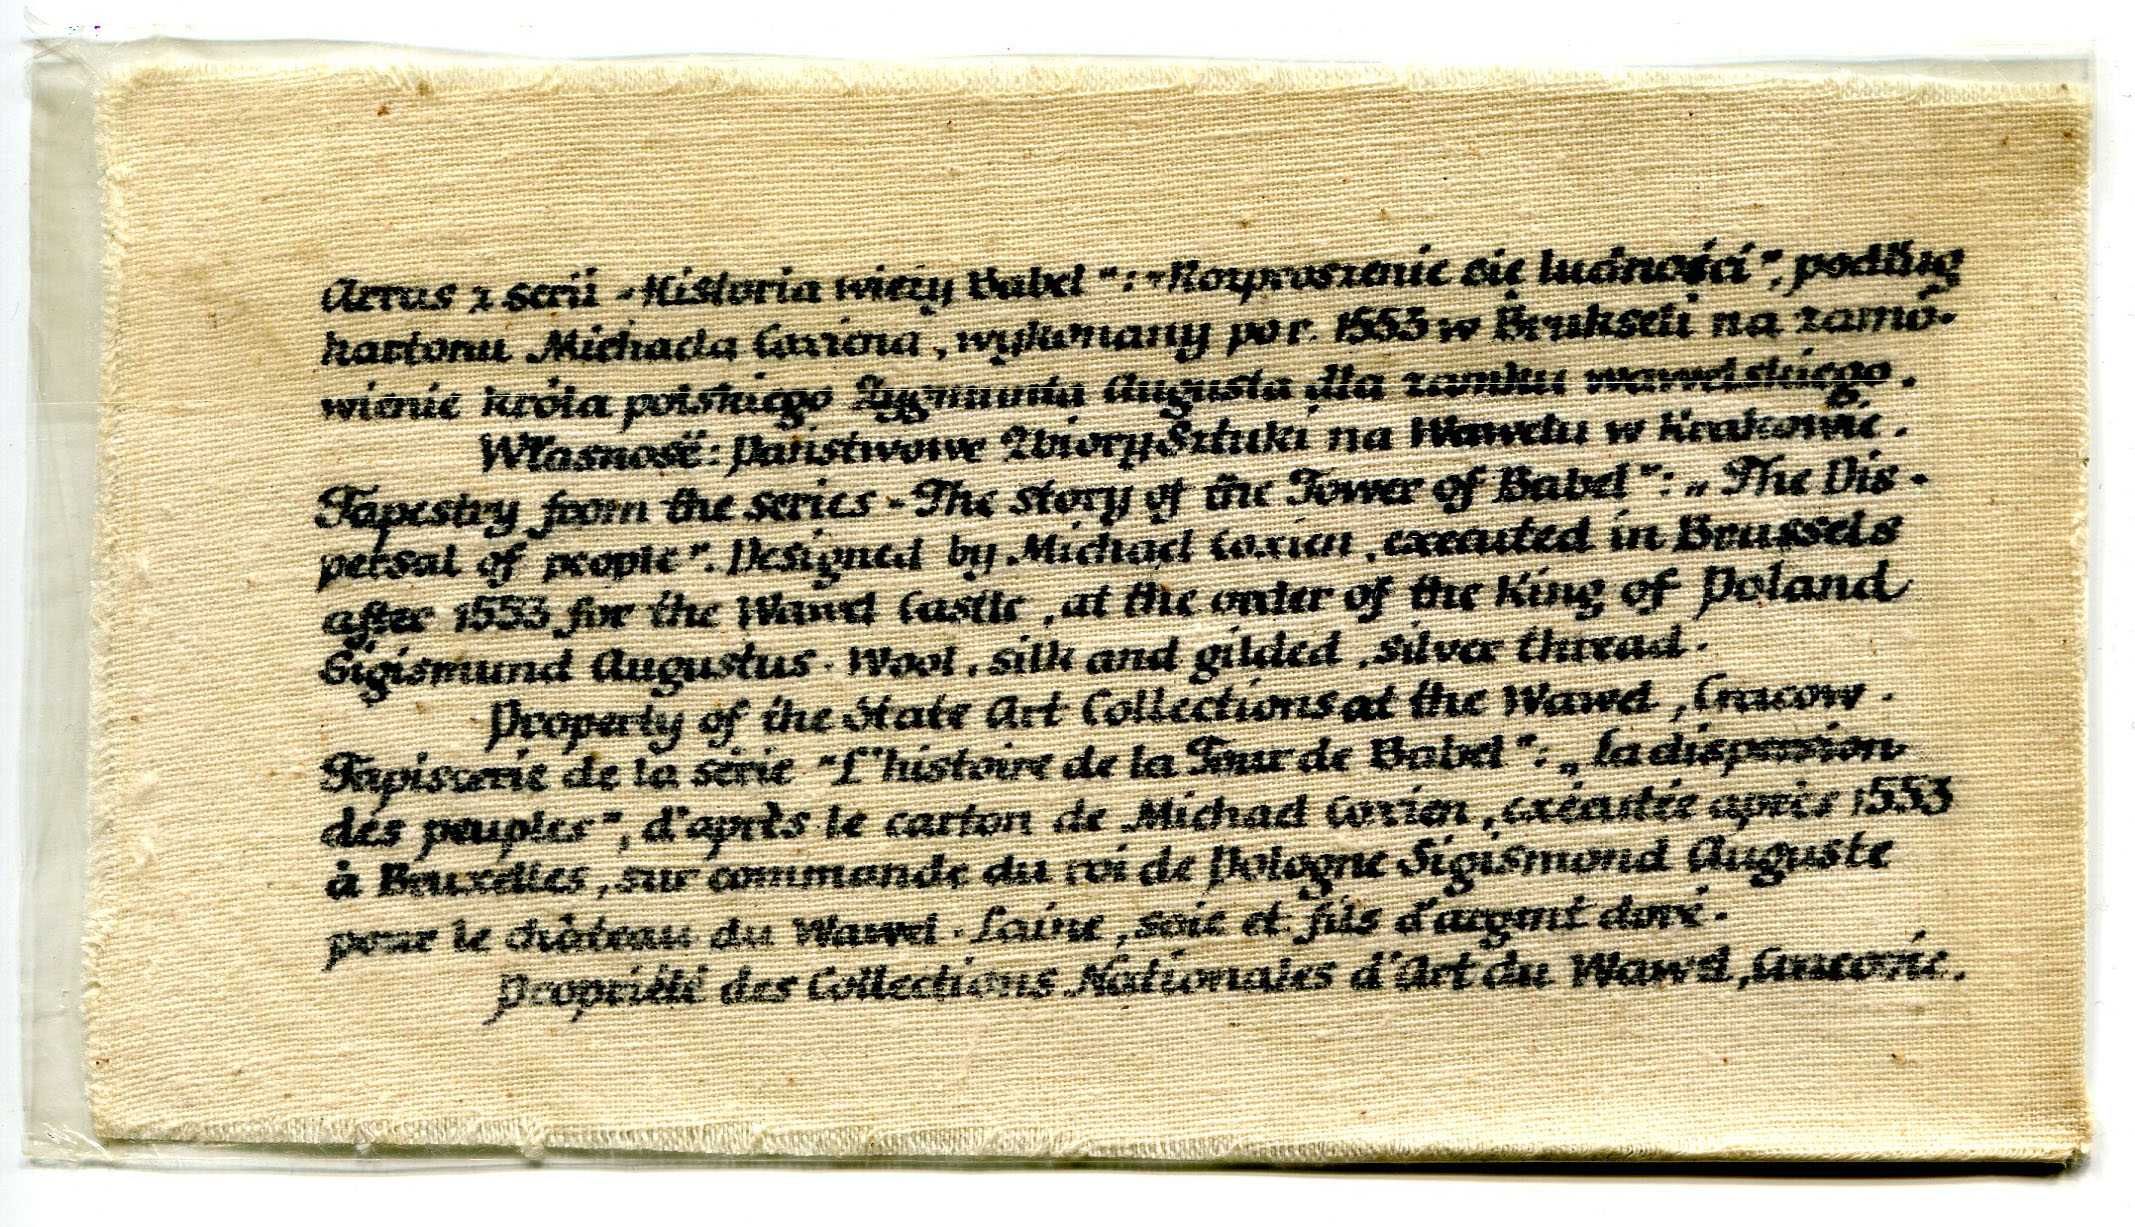 Arras z serii „Historia wieży Babel": „Rozproszenie się ludności", podług
kartonu Michaela Coxiena, wykonany po r. 1553 w Brukseli na zamó-
wienie króla polskiego Zygmunta Augusta dla zamku wawelskiego.
Własność: Państwowe Zbiory Sztuki na Wawelu w Krakowie.
Tapestry from the series „The Story of the Tower of Babel": „The Dis-
persal of people". Designed by Michael Coxien, executed in Brussels
after 1553 for the Wawel Castle, at the order of the King of Poland
Sigismund Augustus. Wool, silk and gilded, silver thread.
Property of the State Art Collections at the Wawel, Cracow.
Tapisserie de la série "L'histoire de la Tour de Babel": „la dispersion
des peuples", d'après le carton de Michael Coxien, exécutée après 1553
à Bruxelles, sur commande du roi de Pologne Sigismond Auguste
pour le château du Wawel. Laine, soie et fils d'argent doré.
Propriété des Collections Nationales d'Art du Wawel, Cracovie.